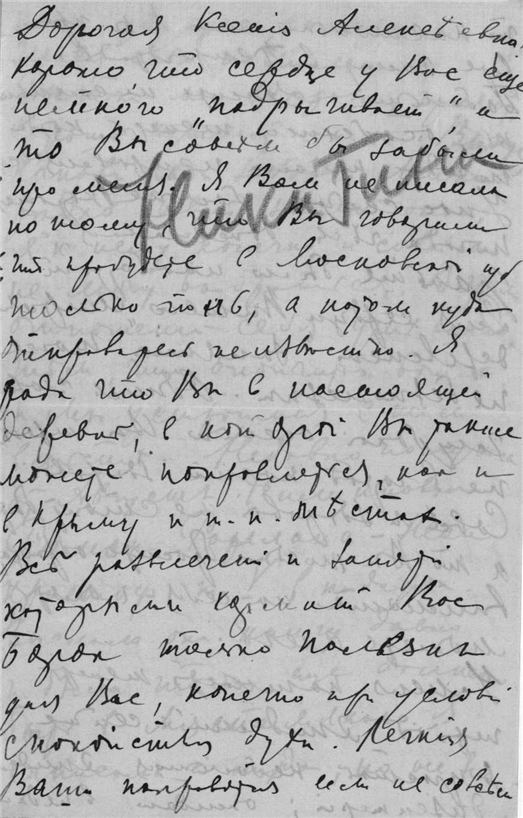 Дорогая Ксенiя Алексѣевна.
хорошо что сердце у Вас еще
немного „надрыгивает“ а
то Вы совсем бы забыли
про меня. Я Вам не писала
потому, что Вы говорили
что пробудете в Московской губ
только iюнь, а потом куда
отправитесь неизвѣстно. Я
рада что Вы в настоящей
деревнѣ, в которой Вы также
можете поправляться, как и
в Крыму и т. п. мѣстах.
Всѣ развлеченiя и занятiя
которыми кормит Вас
только полезны
для Вас, конечно при условiи
спокойствiя духа. Легкiя
Ваши поправятся если не совсем